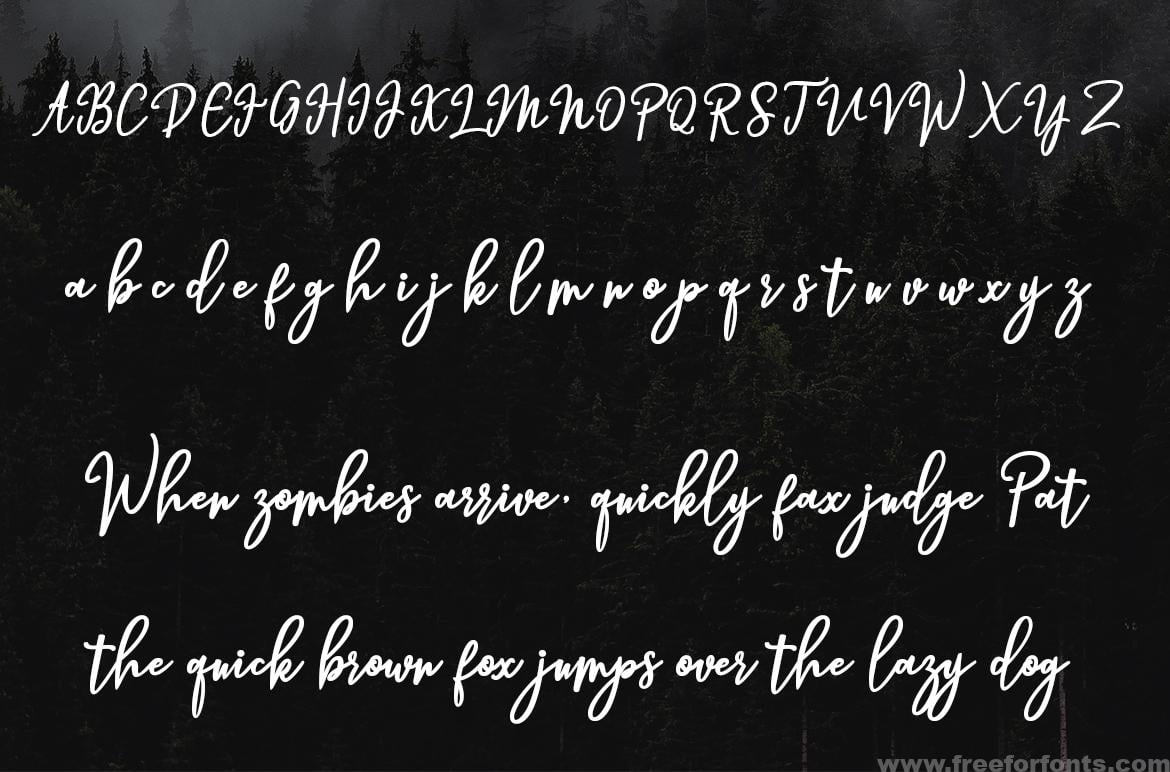 ABCDEFGHIJKLMNOPQRSTUVWXYZ
a b c d e f g h i j k l m n o p q r s t u v w x y z
When zombies arrive, quickly fax judge Pat
the quick brown fox jumps over the lazy dog
www.freeforfonts.com